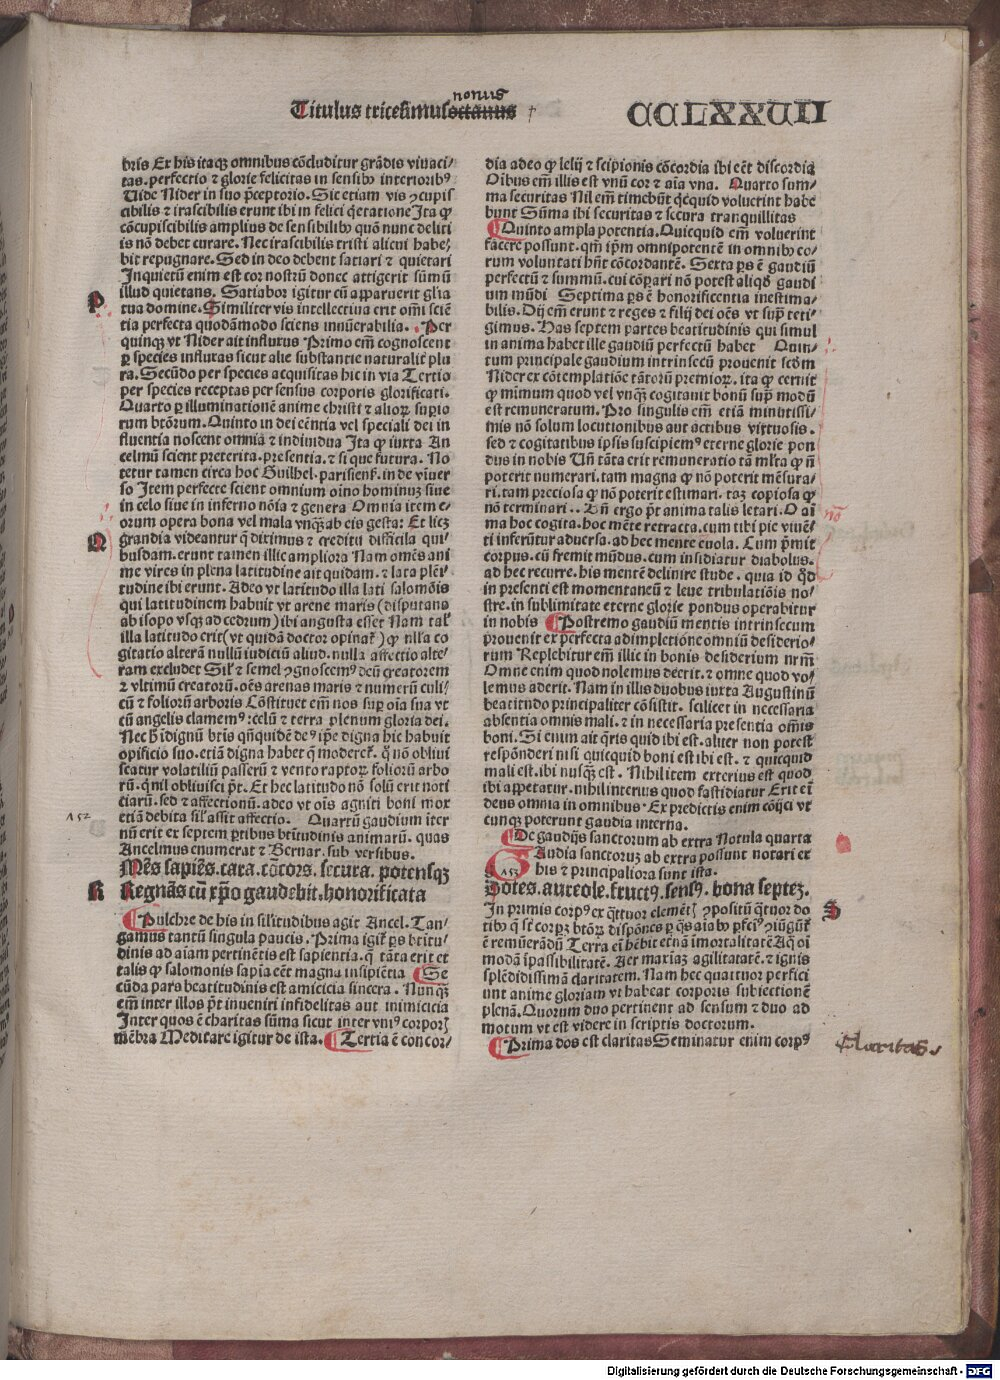 Titulus tricesimus octauus nonus
CCLXXVII
bris Ex his itaqꝫ omnibus cōcluditur grādis viuaci⸗
tas. perfectio ⁊ glorie felicitas in sensibꝰ interioribꝰ
Vide Nider in suo p̄ceptorio. Sic etiam vis ꝯcupis
cibilis ⁊ irascibilis erunt ibi in felici q̇etatione Ita ꝙ
cōcupiscibilis amplius de sensibilibꝰ quā nunc deliti
is nō debet curare. Nec irascibilis tristi alicui habe⸗
bit repugnare. Sed in deo debent satiari ⁊ quietari
Inquietū enim est cor nostrū donec attigerit sūmū
illud quietans. Satiabor igitur cū apparuerit gl̄ia
P
tua domine. Similiter vis intellectiua erit om̄i sciē
tia perfecta quodāmodo sciens innūerabilia. Per
quinqꝫ vt Nider ait influxus Primo em̄ cognoscent
ꝑ species influxas sicut alie substantie naturalit̄ plu
ra. Secūdo per species acquisitas hic in via Tertio
per species receptas per sensus corporis glorificati.
Quarto ꝑ illuminationē anime christi ⁊ alioꝝ suꝑio
rum btōrum. Quinto in dei eēntia vel speciali dei in
fluentia noscent omnia ⁊ indiuidua Ita ꝙ iuxta An
celmū scient preterita. presentia. ⁊ si que futura. No
tetur tamen circa hoc Guilhel. parisienꝭ. in de vniuer
so Item perfecte scient omnium oīno hominuꝫ siue
in celo siue in inferno nōia ⁊ genera Omnia item e⸗
orum opera bona vel mala vnqꝫ ab eis gesta: Et licꝫ
Q
grandia videantur q̄ diximus ⁊ creditu difficilia qui⸗
busdam. erunt tamen illic ampliora Nam omēs ani
me vires in plena latitudine ait quidam. ⁊ lata plēi⸗
tudine ibi erunt. Adeo vt latitudo illa lati salomōis
qui latitudinem habuit vt arene maris (disputans
ab isopo vsqꝫ ad cedrum) ibi angusta esset Nam tal̄
illa latitudo erit (vt quidā doctor opinat̄) ꝙ nll̄a co
gitatio alterā nullū iudiciū aliud. nulla affectio alte⸗
ram excludet Sil̄ ⁊ semel ꝯgnoscemꝰ deū creatorem
⁊ vltimū creatorū. oēs arenas maris ⁊ numerū culi⸗
cū ⁊ folioꝝ arboris Cōstituet em̄ nos suꝑ oīa sua vt
cū angelis clamemꝰ: celū ⁊ terra plenum gloria dei.
Nec h̄ īdignū btīs qn̄quidē deꝰ ip̄e digna hic habuit
opificio suo. etiā digna habet q̄ moderet̄. q̇ nō obliui
scatur volatiliū passerū ⁊ vento raptoꝝ folioꝝ arbo
rū. q̇ nil obliuisci pt̄. Et hec latitudo nō solū erit noti
ciarū. sed ⁊ affectionū. adeo vt oīs agniti boni mox
152
etiā debita sil̄ assit affectio. Quartū gaudium iter
nū erit ex septem ꝑtibus btītudinis animarū. quas
Ancelmus enumerat ⁊ Bernar. sub versibus.
Mēs sapiēs. cara. cōcors. secura. potensqꝫ
R
Regnās cū xp̄o gaudebit. honorificata
Pulchre de his in sil̄itudibus agit Ancel. Tan⸗
gamus tantū singula paucis. Prima igit̄ ps btītu⸗
dinis ad aīam pertinētis est sapientia. q̄ tāta erit et
talis ꝙ salomonis sapīa eēt magna insipiētia Se
cūda pars beatitudinis est amicicia sincera. Nunqꝫ
em̄ inter illos pt̄ inueniri infidelitas aut inimicicia
Inter quos ē charitas sūma sicut inter vniꝰ corporꝭ
mēbra Meditare igitur de ista. Tertia ē concor⸗
dia adeo ꝙ lelij ⁊ scipionis cōcordia ibi eēt discordia
Oībus em̄ illis est vnū cor ⁊ aīa vna. Quarto sum⸗
ma securitas Nil em̄ timebūt q̇equid voluerint habe
bunt Sūma ibi securitas ⁊ secura tranquillitas
Quinto ampla potentia. Quicquid em̄ voluerint
facere possunt. qm̄ ip̄m omnipotentē in omnibꝰ co⸗
rum voluntati hn̄t cōcordantē. Sexta ps ē gaudiū
perfectū ⁊ summū. cui cōꝑari nō potest aliqḋ gaudi
um mūdi Septima ps ē honorificentia inestima⸗
bilis. Dij em̄ erunt ⁊ reges ⁊ filij dei oēs vt supͣ teti⸗
gimus. Has septem partes beatitudinis qui simul
in anima habet ille gaudiū perfectū habet Quin⸗
tum principale gaudium intrinsecū prouenit scḋm
Nider ex cōtemplatiōe tātorū premioꝝ. ita ꝙ cernit
ꝙ mimum quod vel vnqꝫ cogitauit bonū supͣ modū
est remuneratum. Pro singulis em̄ etiā minutissi⸗
mis nō solum locutionibus aut actibus virtuosis.
sed ⁊ cogitatibus ipsis suscipiemꝰ eterne glorie pon
dus in nobis Vn̄ tāta erit remuneratio tā ml̄ta ꝙ n̄
poterit numerari. tam magna ꝙ nō poterit mēsura⸗
ri. tam preciosa ꝙ nō poterit estimari. taꝫ copiosa ꝙ
nō terminari .. Vn̄ ergo pt̄ anima talis letari. O aī
nō
ma hoc cogita. hoc mēte retracta. cum tibi pie viuē⸗
ti inferūtur aduersa. ad hec mente euola. Cum p̄mit
corpus. cū fremit mūdus. cum insidiatur diabolus.
ad hec recurre. his mentē delinire stude. quia id qḋ
in presenti est momentaneū ⁊ leue tribulatiōis no⸗
stre. in sublimitate eterne glorie pondus operabitur
in nobis Postremo gaudiū mentis intrinsecum
prouenit ex perfecta adimpletione omniū desiderio⸗
rum Replebitur em̄ illic in bonis desiderium nr̄m
Omne enim quod nolemus deerit. ⁊ omne quod vo⸗
lemus aderit. Nam in illis duobus iuxta Augustinū
beatitudo principaliter cōsistit. scilicet in necessaria
absentia omnis mali. ⁊ in necessaria presentia om̄is
boni. Si enim ait q̇ris quid ibi est. aliter non potest
respōderi nisi quicquid boni est ibi est. ⁊ quicquid
mali est. ibi nusqꝫ est. Nihil item exterius est quod
ibi appetatur. nihil interius quod fastidiatur Erit ei
deus omnia in omnibus. Ex predictis enim cōijci vt
cunqꝫ poterunt gaudia interna.
De gaudijs sanctorum ab extra Notula quarta
Gaudia sanctoruꝫ ab extra possunt notari ex
153
his ⁊ principaliora sunt ista.
Dotes. aureole. fructꝰ. sensꝰ. bona septeꝫ.
S
In primis corpꝰ ex q̄ttuor elemētꝭ ꝯpositū q̄tuor do
tibꝰ q̄ st̄ corpꝫ btōꝝ dispōnes ꝑ q̄s aīabꝰ ꝑfci ꝯiūgūt̄
ē remūerādū Terra em̄ hēbit etnā īmortalitatē Aq̄ oī
modā īpassibilitatē. Aer maxiaꝫ agilitatatē. ⁊ ignis
splēdidissimā claritatem. Nam hec quattuor perfici
unt anime gloriam vt habeat corporis subiectionē
plenā. Quorum duo pertinent ad sensum ⁊ duo ad
motum vt est videre in scriptis doctorum.
Prima dos est claritas Seminatur enim corpꝰ
Claritas
Digitalisierung gefördert durch die Deutsche Forschungsgemeinschaft - DFG